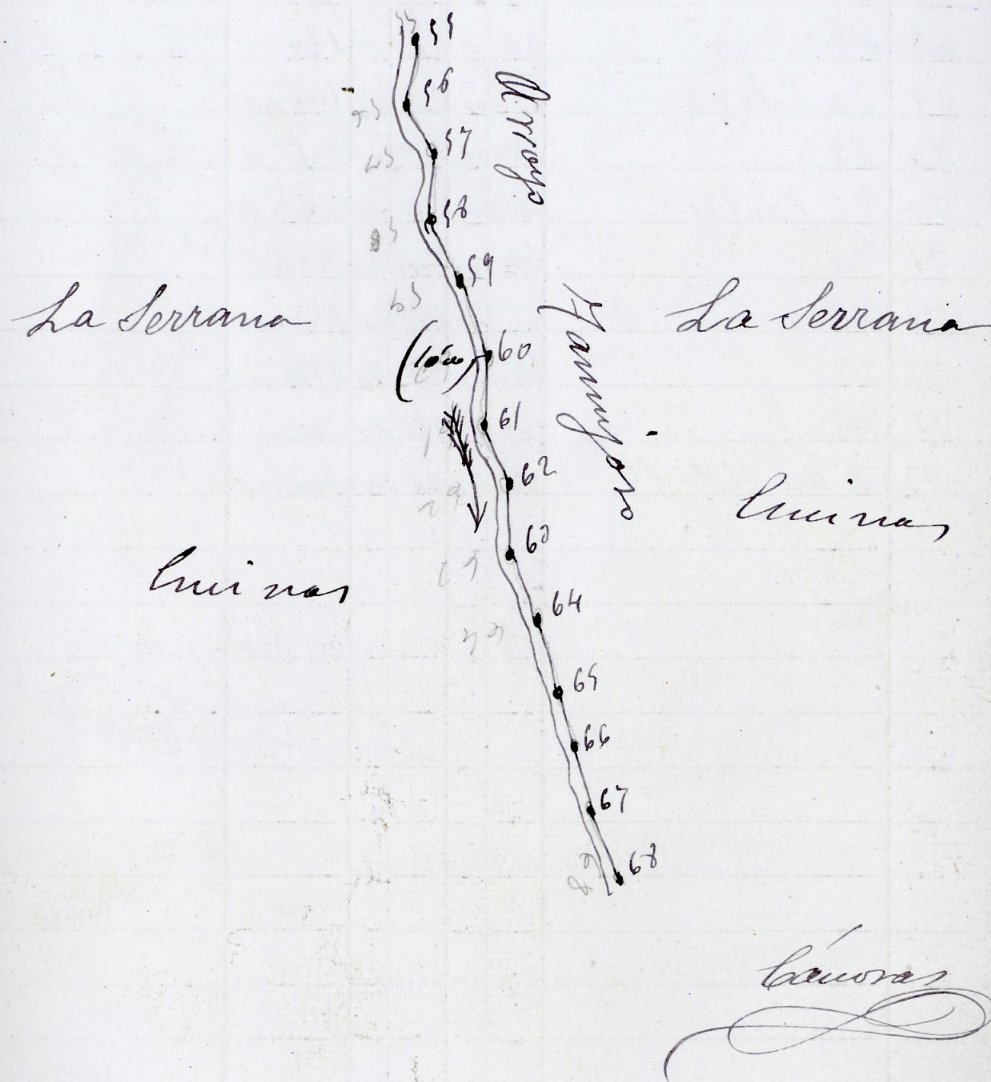 55
56
57
58
59
60
61
62
63
64
65
66
67
68
Arroyo
La Serrana
La Serrana
Encinas
Encinas
Cánovas